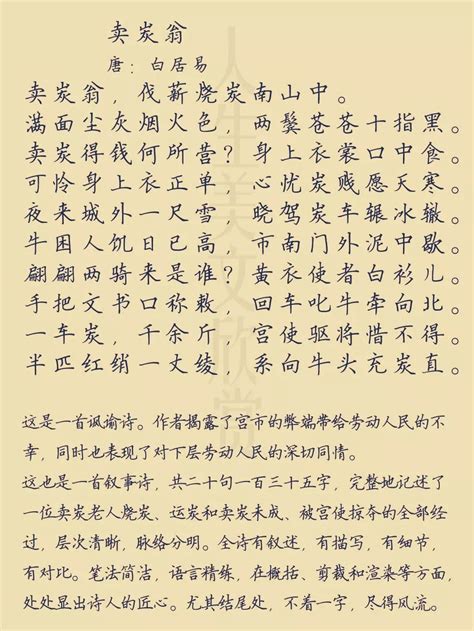 卖炭翁
唐：白居易
卖炭翁，伐薪烧炭南山中。
满面尘灰烟火色，两鬓苍苍十指黑。
卖炭得钱何所营？身上衣裳口中食。
可怜身上衣正单，心忧炭贱愿天寒。
夜来城外一尺雪，晓驾炭车辗冰辙。
牛困人饥日已高，市南门外泥中歇。
翩翩两骑来是谁？黄衣使者白衫儿。
手把文书口称敕，回车叱牛牵向北。
一车炭，千余斤，宫使驱将惜不得。
半匹红绡一丈绫，系向牛头充炭直。
这是一首讽谕诗。作者揭露了宫市的弊端带给劳动人民的不
幸，同时也表现了对下层劳动人民的深切同情。
这也是一首叙事诗，共二十句一百三十五字，完整地记述了
一位卖炭老人烧炭、运炭和卖炭未成、被宫使掠夺的全部经
过，层次清晰，脉络分明。全诗有叙述，有描写，有细节，
有对比。笔法简洁，语言精练，在概括、剪裁和渲染等方面，
处处显出诗人的匠心。尤其结尾处，不着一字，尽得风流。
人生美文欣赏